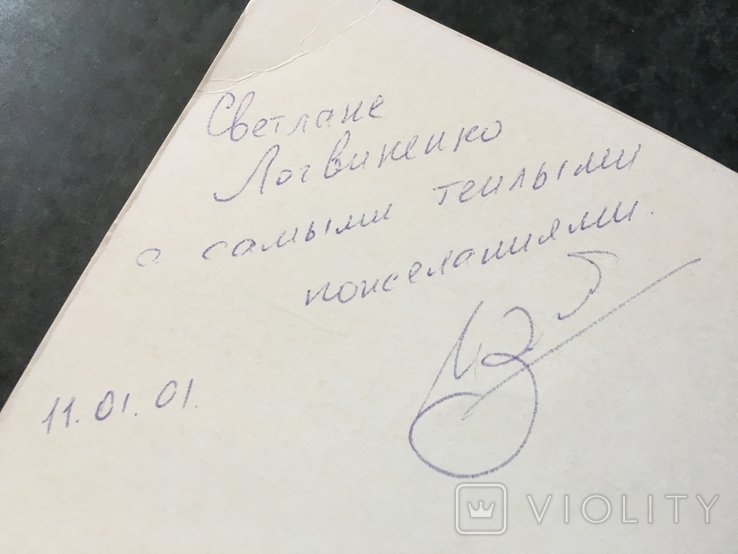 Светлане
Логвиненко
с самыми теплыми
пожеланиями.
11.01.01.
VIOLITY